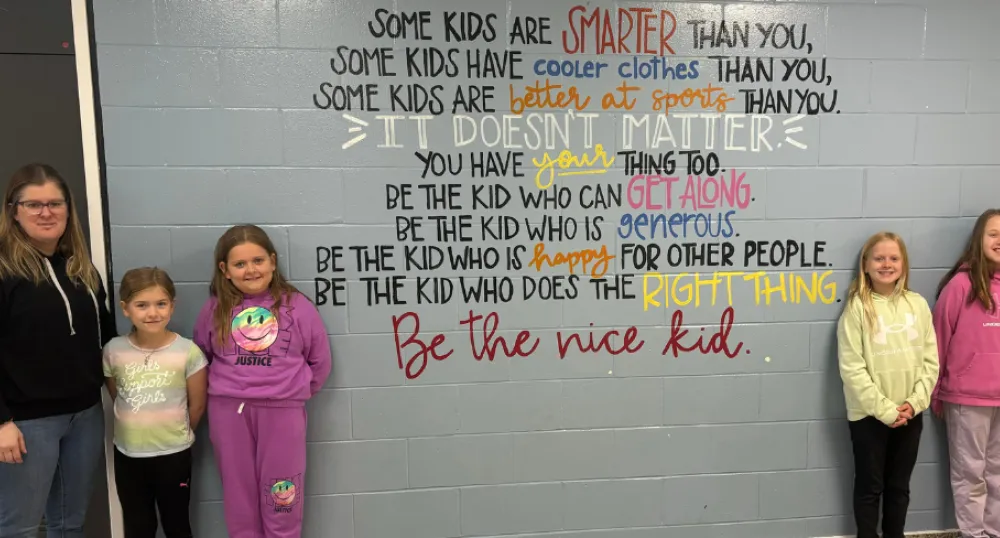 SOME KIDS ARE SMARTER THAN YOU,
SOME KIDS HAVE cooler clothes THAN YOU,
SOME KIDS ARE better at sports THAN YOU.
IT DOESN'T MATTER.
YOU HAVE your THING TOO.
BE THE KID WHO CAN GET ALONG.
BE THE KID WHO IS generous.
BE THE KID WHO IS happy FOR OTHER PEOPLE.
BE THE KID WHO DOES THE RIGHT THING.
Be the nice kid.
Girls
support
Girls
JUSTICE